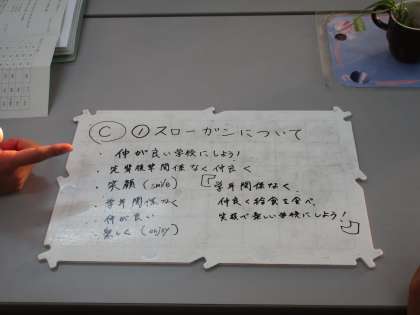 C ①スローガンについて
・仲が良い学校にしよう!
・先輩後輩関係なく仲良く
・笑顔(smile)
・学年関係なく
・仲が良い
・楽しく(enjoy)
「学年関係なく、
仲良く給食を食べ、
笑顔で楽しい学校にしよう!」